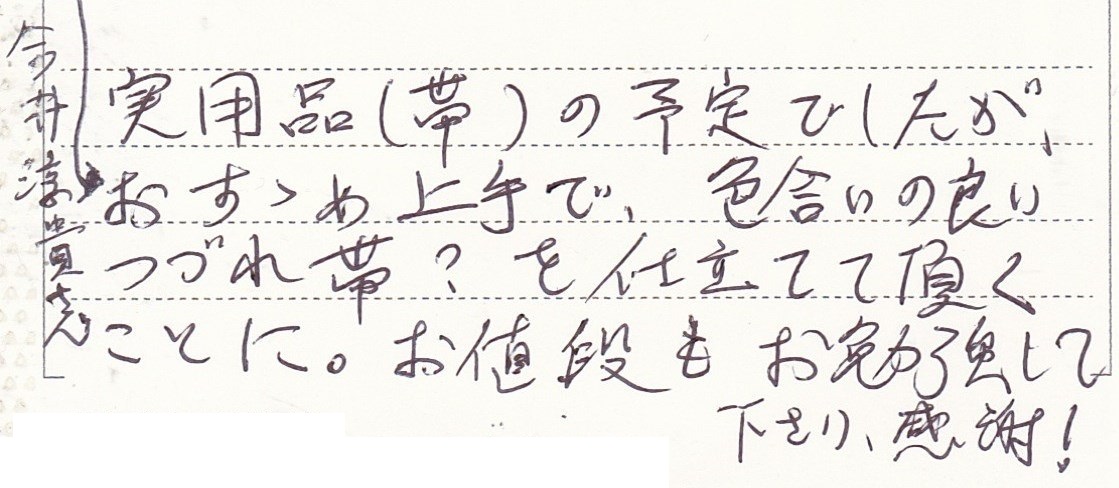 実用品(帯)の予定でしたが、
おすゝめ上手で、色合いの良い
つづれ帯?を仕立てて頂く
ことに。お値段もお勉強して
下さり、感謝!
今井淳貴さん